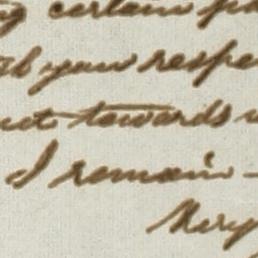 certain
your respe
towards
I remain -
Very